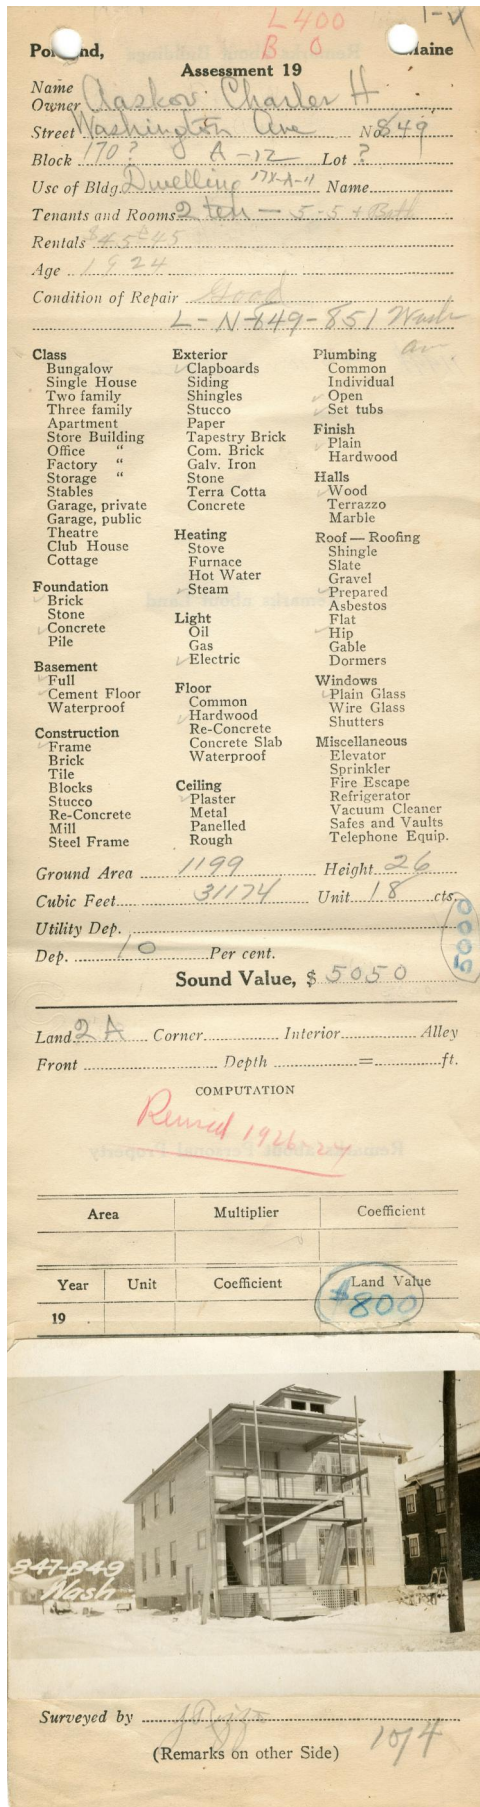 L 400
B 0
1-
Portland, Maine
Assessment 19
Name
Owner Aaskov Charles H
Street Washington Ave No. 849
Block 170? A-12 Lot ?
178-A-11
Use of Bldg. Dwelling Name
Tenants and Rooms 2 ten — 5-5 + Bath
Rentals $45 £45
Age 1924
Condition of Repair Good
L-N-849-851 Wash
av.
Class
Bungalow
Single House
Two family
Three family
Apartment
Store Building
Office "
Factory "
Storage "
Stables
Garage, private
Garage, public
Theatre
Club House
Cottage
Foundation
Brick
Stone
Concrete
Pile
Basement
Full
Cement Floor
Waterproof
Construction
Frame
Brick
Tile
Blocks
Stucco
Re-Concrete
Mill
Steel Frame
Exterior
Clapboards
Siding
Shingles
Stucco
Paper
Tapestry Brick
Com. Brick
Galv. Iron
Stone
Terra Cotta
Concrete
Heating
Stove
Furnace
Hot Water
Steam
Light
Oil
Gas
Electric
Floor
Common
Hardwood
Re-Concrete
Concrete Slab
Waterproof
Ceiling
Plaster
Metal
Panelled
Rough
Plumbing
Common
Individual
Open
Set tubs
Finish
Plain
Hardwood
Halls
Wood
Terrazzo
Marble
Roof — Roofing
Shingle
Slate
Gravel
Prepared
Asbestos
Flat
Hip
Gable
Dormers
Windows
Plain Glass
Wire Glass
Shutters
Miscellaneous
Elevator
Sprinkler
Fire Escape
Refrigerator
Vacuum Cleaner
Safes and Vaults
Telephone Equip.
Ground Area 1199 Height 26
Cubic Feet 31174 Unit 18 cts.
Utility Dep.
Dep. 10 Per cent.
5000
Sound Value, $ 5050
Land 2 A Corner Interior Alley
Front Depth = ft.
COMPUTATION
Revised 1926-27
Area Multiplier Coefficient
Year Unit Coefficient Land Value
19 $800
847-849
Wash
Surveyed by
10/4
(Remarks on other Side)